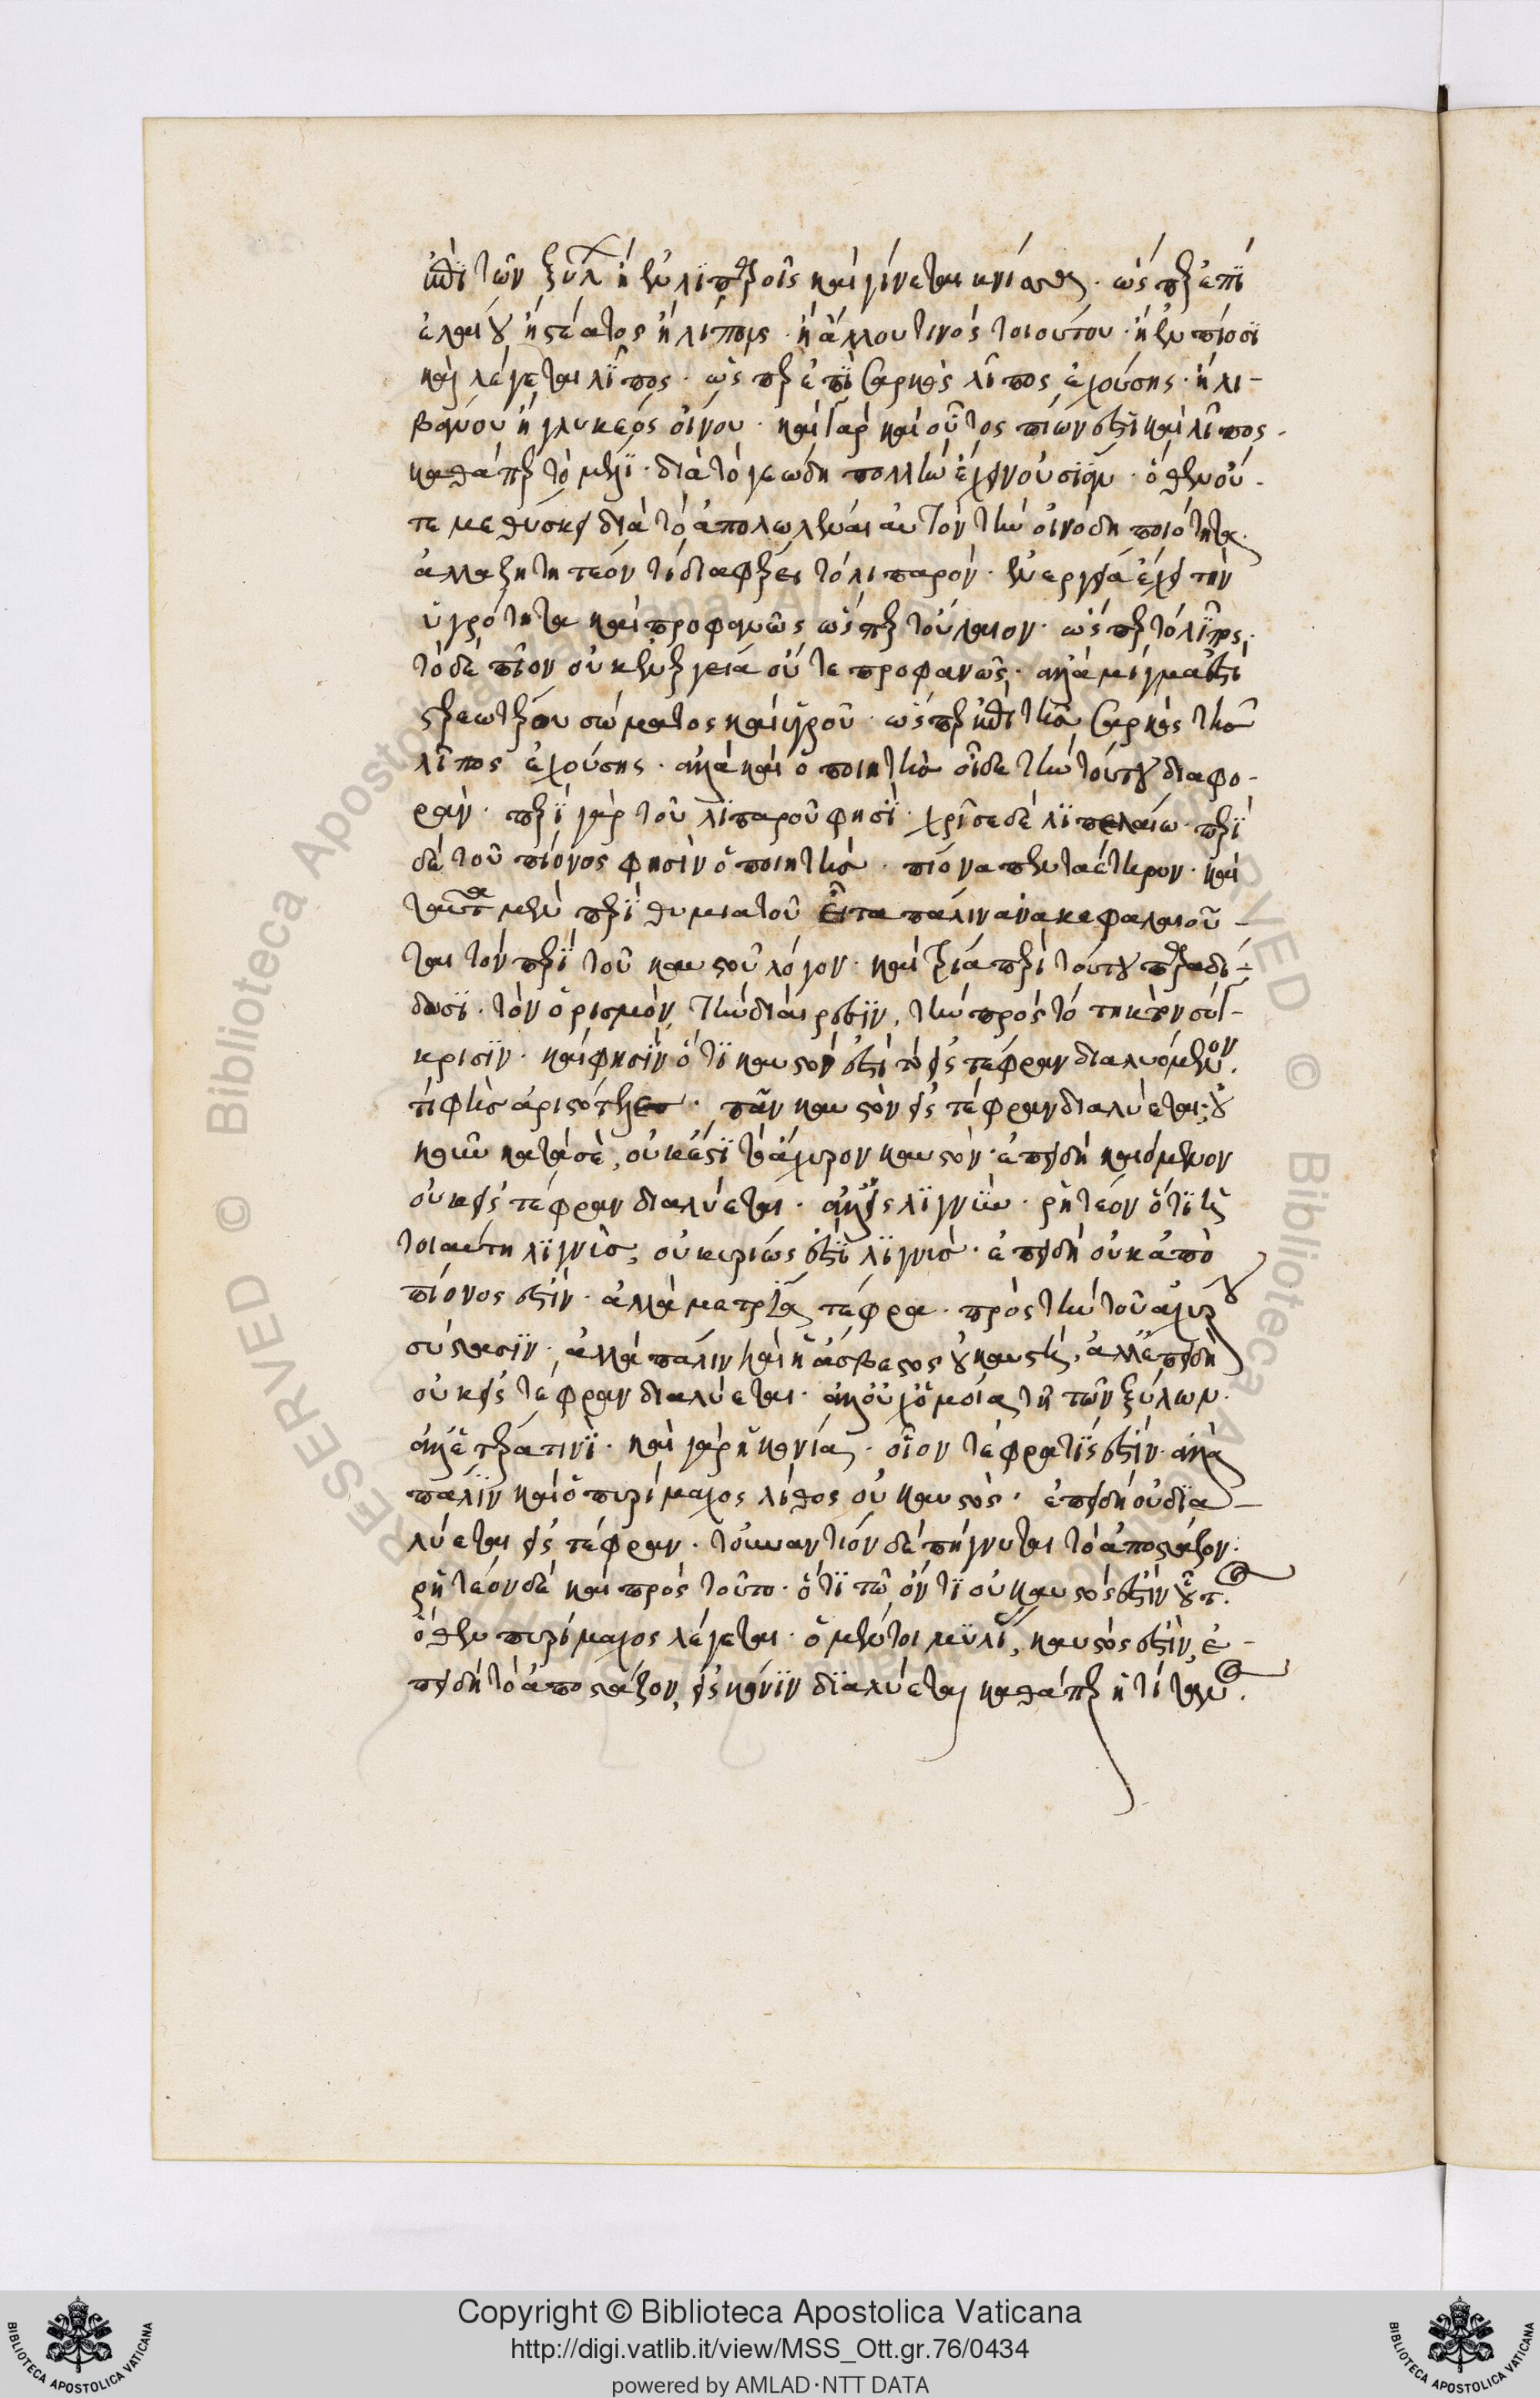 ἐπὶ τῶν ξύλ ἢ ἐν λιπαροῖς καὶ γίνεται κνίσσα. ὥσπερ ἐπὶ
ἐλαίου ἢ στέατος ἢ λίπους. ἢ ἄλλου τινὸς τοιούτου. ἢ ἐν πίοσι
καὶ λέγεται λῖπος. ὥσπερ ἐπὶ σαρκὸς λῖπος ἐχούσης. ἢ λι-
βάνου ἢ γλυκέος οἴνου. καὶ γὰρ καὶ οὗτος πίων ἐστὶ καὶ λῖπος.
καθάπερ τὸ μέλι. διὰ τὸ γεώδη πολλὴν ἔχειν οὐσίαν. ὅθεν οὔ-
τε μεθύσκει διὰ τὸ ἀπολωλέναι αὐτὸν τὴν οἰνώδη ποιότητα.
ἀλλὰ ζητητέον τί διαφέρει τὸ λιπαρὸν. ἐνεργείᾳ ἔχει τὴν
ὑγρότητα καὶ προφανῶς ὥσπερ τοὔλαιον. ὥσπερ τὸ λῖπος.
τὸ δὲ πῖον οὐκ ἐνεργείᾳ οὔτε προφανῶς. ἀλλὰ μίγμα ἐστὶ
στερεωτέρου σώματος καὶ ὑγροῦ. ὥσπερ ἐπὶ τῆς σαρκὸς τῆς
λῖπος ἐχούσης. ἀλλὰ καὶ ὁ ποιητὴς οἶδε τὴν τούτου διαφο-
ράν. περὶ γὰρ τοῦ λιπαροῦ φησί. χρῖσε δὲ λίπ' ἐλαίῳ. περὶ
δὲ τοῦ πίονος φησὶν ὁ ποιητής. πίονα πενταέτηρον. καὶ
ταῦτα μὲν περὶ θυμιατοῦ Εἶτα πάλιν ἀνακεφαλαιοῦ-
ται τὸν περὶ τοῦ καυστοῦ λόγον. καὶ τρία περὶ τούτου παραδί-
δωσι. τὸν ὁρισμόν, τὴν διαίρεσιν, τὴν πρὸς τὸ τηκτὸν σύγ-
κρισιν. καὶ φησὶν ὅτι καυστόν ἐστι τὸ εἰς τέφραν διαλυόμενον.
τί φὴς ἀριστότελες. πᾶν καυστὸν εἰς τέφραν διαλύεται; οὐ
κοῦν κατὰ σὲ, οὐκ ἔστι τὸ ἄχυρον καυστόν. ἐπειδὴ καιόμενον
οὐκ εἰς τέφραν διαλύεται. ἀλλ' εἰς λιγνύν. ῥητέον ὅτι ἡ
τοιαύτη λιγνὺς, οὐ κυρίως ἐστὶ λιγνύς. ἐπειδὴ οὐκ ἀπὸ
πίονος ἐστίν. ἀλλὰ μετρία τέφρα. πρὸς τὴν τοῦ ἀχύρου
σύστασιν. ἀλλὰ πάλιν καὶ ἡ ἄσβεστος οὐ καυστή, ἀλλ' ἐπειδὴ
οὐκ εἰς τέφραν διαλύεται. ἀλλ' οὐχ ὁμοία τῇ τῶν ξύλων.
ἀλλ' ἑτέρα τινί. καὶ γὰρ ἡ κονία. οἷον τέφρα τίς ἐστίν. ἀλλὰ
πάλιν καὶ ὁ πυρίμαχος λίθος οὐ καυστός. ἐπειδὴ οὐ δια-
λύεται εἰς τέφραν. τοὐναντίον δὲ πήγνυται τὸ ἀποστάζον.
ῥητέον δὲ καὶ πρὸς τοῦτο. ὅτι τῷ ὄντι οὐ καυστός ἐστιν οὗτος.
ὅθεν πυρίμαχος λέγεται. ὁ μέντοι μυλί, καυστός ἐστιν, ἐ-
πειδὴ τὸ ἀποστάζον, εἰς κόνιν διαλύεται καθάπερ ἡ τίτανος.
Copyright © Biblioteca Apostolica Vaticana
http://digi.vatlib.it/view/MSS_Ott.gr.76/0434
powered by AMLAD·NTT DATA
BIBLIOTECA APOSTOLICA VATICANA
BIBLIOTECA APOSTOLICA VATICANA